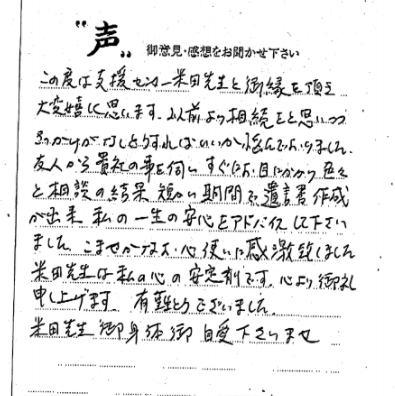 "声"
御意見・感想をお聞かせ下さい
この度は支援センター米田先生と御縁を頂き
大変嬉しく思います。以前より相続をと思いつつ
きっかけが なしどうすればいいか悩んでおりました。
友人から貴社の事を伺い すぐにお目にかかり 色々
と相談の結果 短い期間で 遺言書作成
が出来 私の一生の安心をアドバイス して下さい
ました。こまやかな お心使いに感激致しました
米田先生は私の心の安定剤です。心より御礼
申し上げます。有難とうございました。
米田先生 御身体御自愛下さいませ